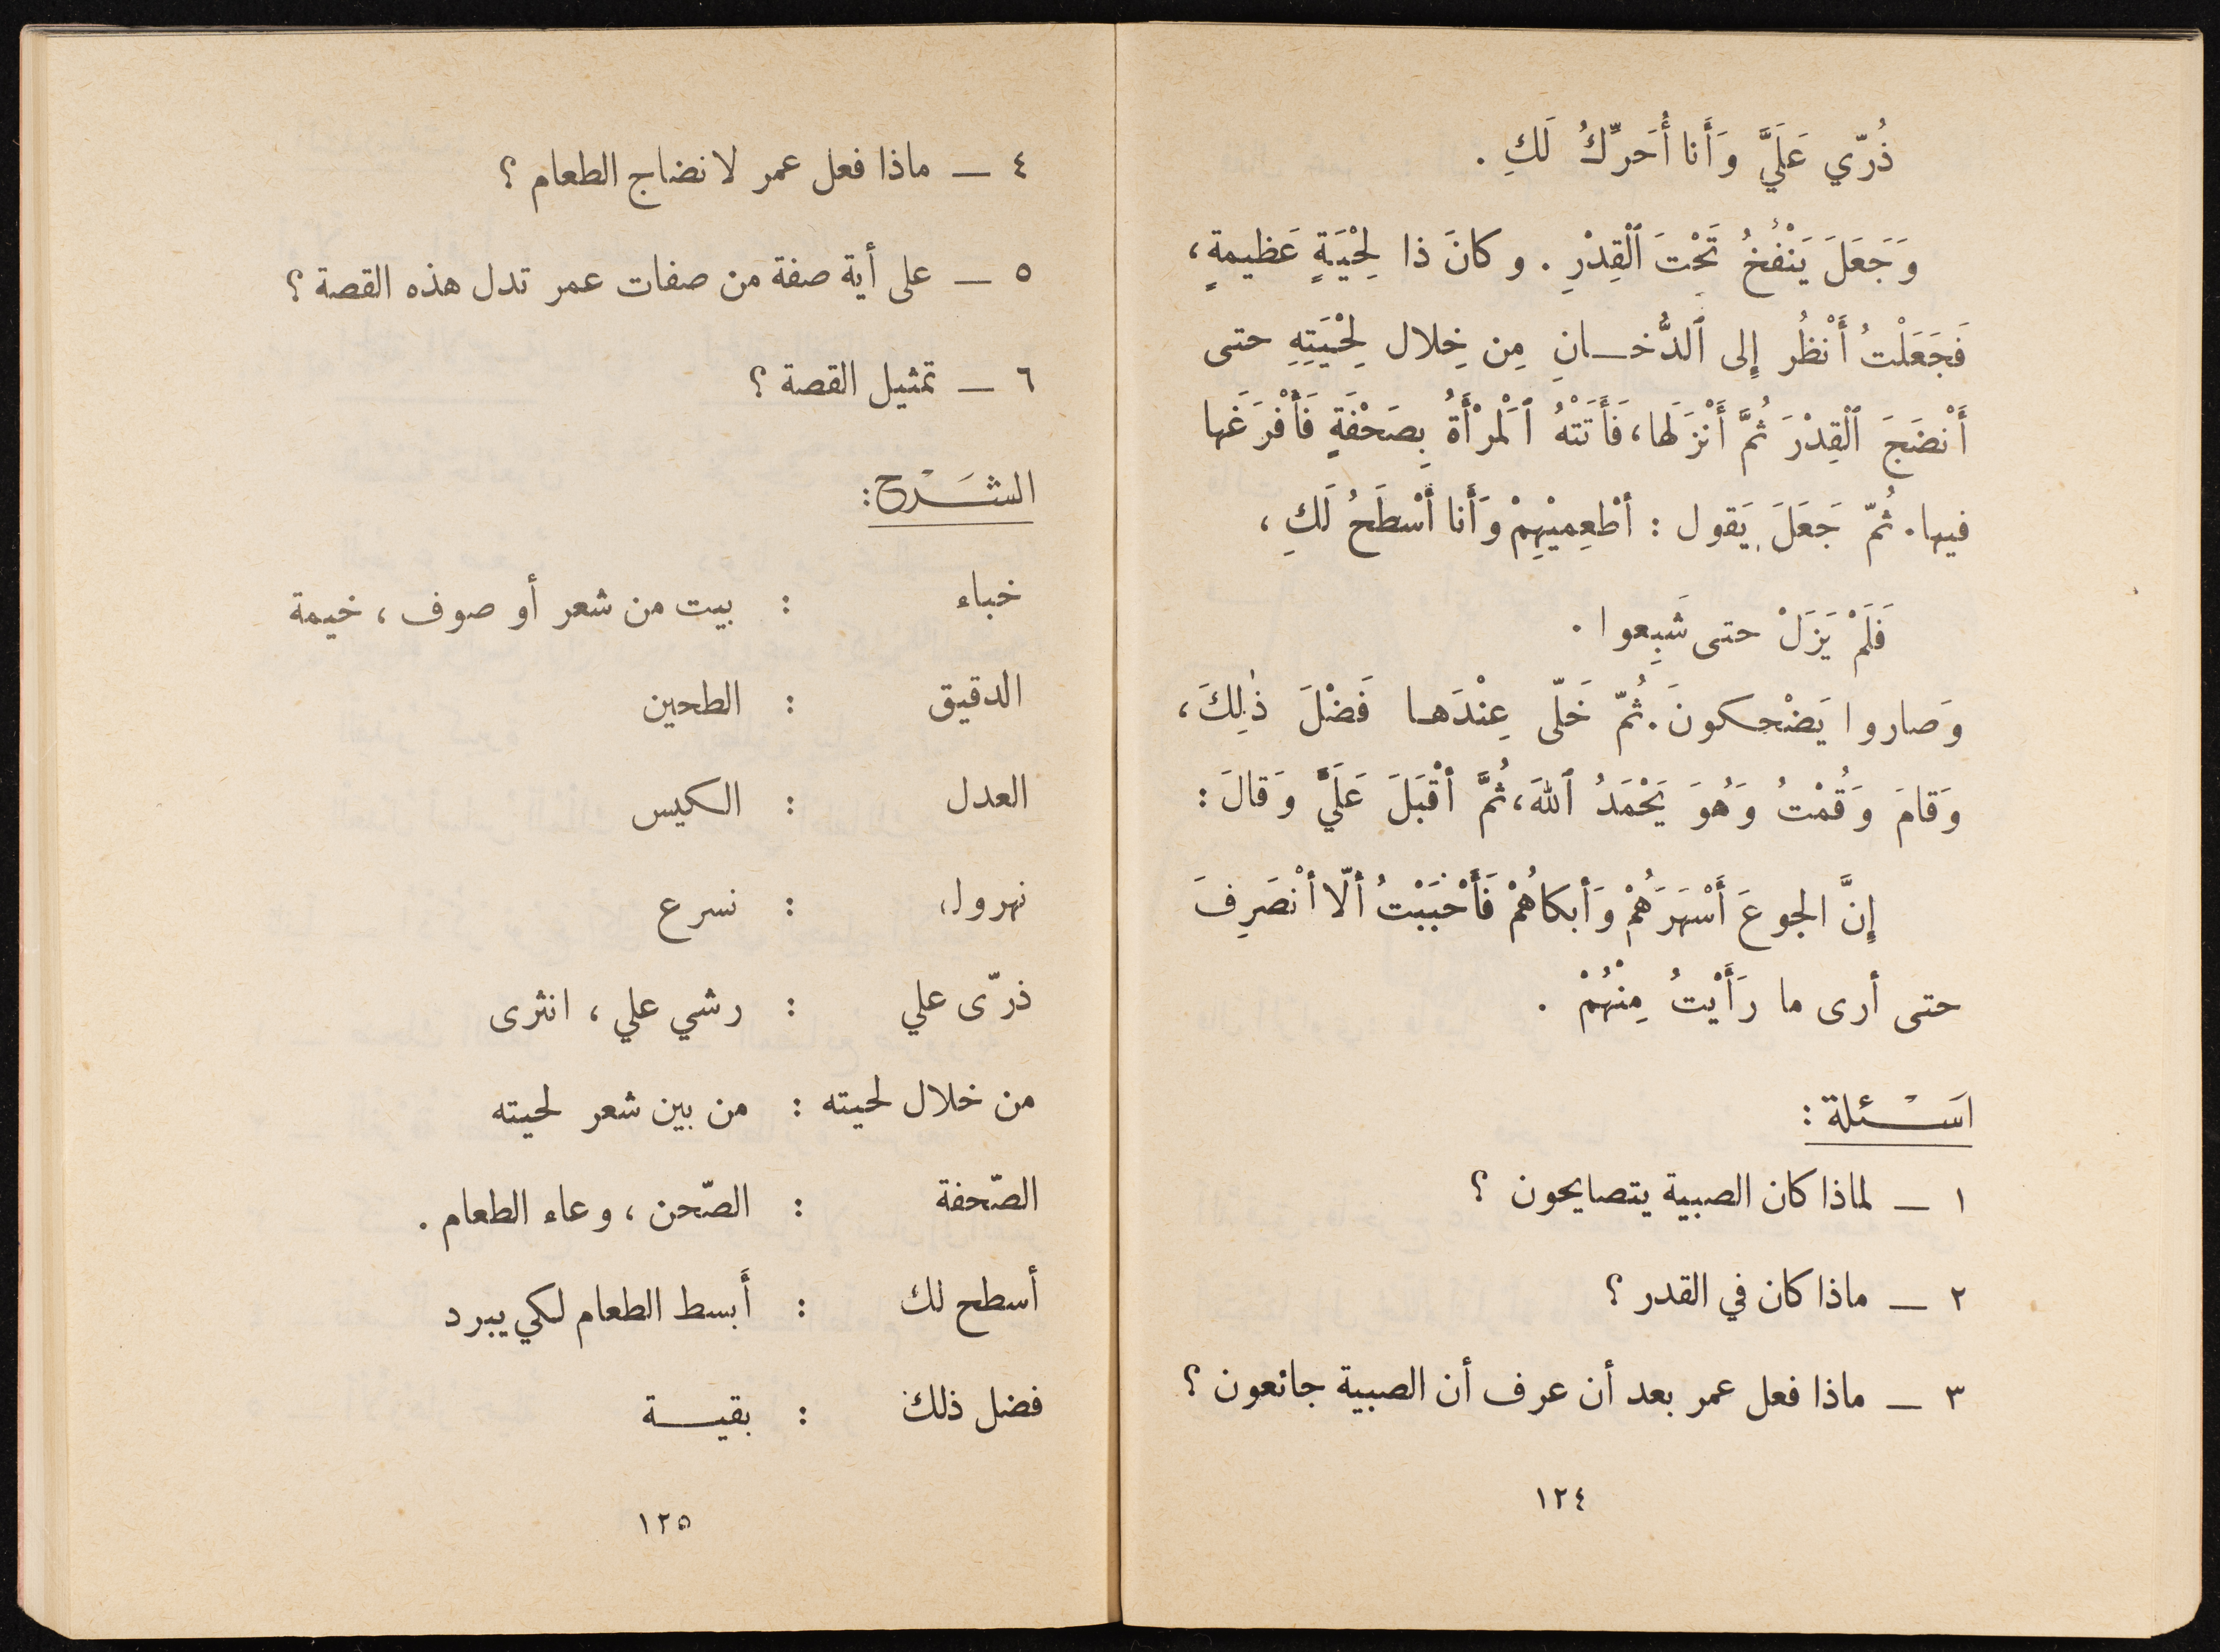 ذُرّي عَلَيَّ وَأَنا أُحَرِّكُ لَكِ .
وَجَعَلَ يَنْفُخُ تَحْتَ ٱلْقِدْرِ . وكانَ ذا لِحْيَةٍ عَظيمةٍ ،
فَجَعَلْتُ أَنْظُر إِلى ٱلدُّخـانِ مِن خِلال لِحْيَتِهِ حتى
أَنْضَجَ ٱلْقِدْرَ ثُمَّ أَنْزَلَها ، فَأَتَتْهُ ٱلْمرْأَةُ بِصَحْفَةٍ فَأَفْرَغَها
فيها . ثُمّ جَعَلَ يَقول : أطْعِميْهِمْ وَأَنا أَسْطَحُ لَكِ ،
فَلَمْ يَزَلْ حتى شَبِعوا .
وَصاروا يَضْحكونَ . ثُمّ خَلّى عِنْدَهـا فَضْلَ ذٰلِكَ ،
وَقامَ وَقُمْتُ وَهُوَ يَحْمَدُ ٱللهَ ، ثُمَّ أقْبَلَ عَلَيَّ وَقالَ :
إِنَّ الجوعَ أَسْهَرَهُمْ وَأبكاهُمْ فَأَحْبَبْتُ ألّا أنْصَرِفَ
حتى أرى ما رَأَيْتُ مِنْهُمْ .
اسَـْـئلة :
١ — لماذا كان الصبية يتصايحون ؟
٢ — ماذا كان في القدر ؟
٣ — ماذا فعل عمر بعد أن عرف أن الصبية جائعون ؟
١٢٤
٤ — ماذا فعل عمر لانضاج الطعام ؟
٥ — على أية صفة من صفات عمر تدل هذه القصة ؟
٦ — تمثيل القصة ؟
الشَـْـرح :
خباء : بيت من شعر أو صوف ، خيمة
الدقيق : الطحين
العدل : الكيس
نهرول : نسرع
ذرّى علي : رشي علي ، انثرى
من خلال لحيته : من بين شعر لحيته
الصّحفة : الصّحن ، وعاء الطعام .
أسطح لك : أَبسط الطعام لكي يبرد
فضل ذلك : بقيـــة
١٢٥